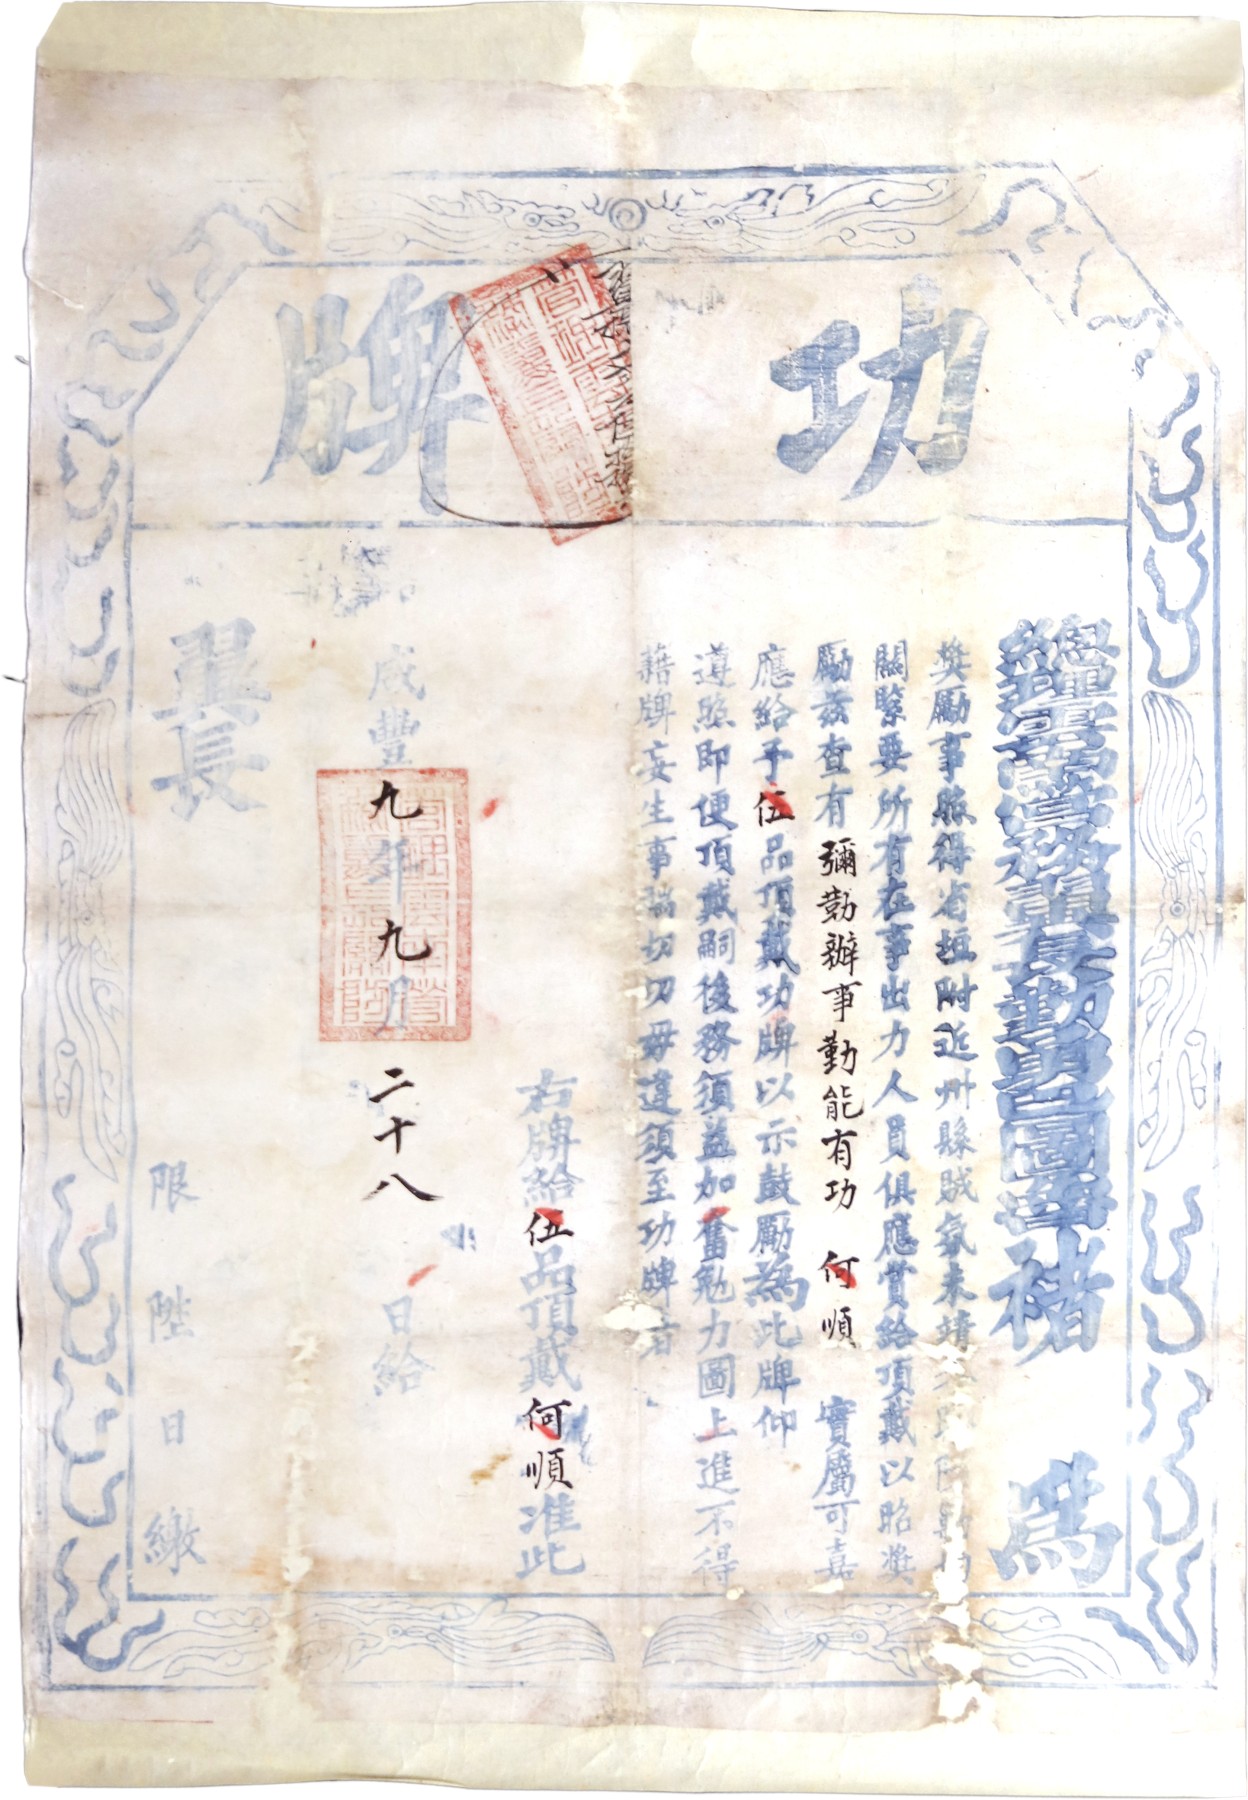 功牌
總理雲南營務翼長勤勇巴圖魯褚 為
獎勵事照得省垣附近州縣賊氛未靖
關緊要所有在事出力人員俱應賞給頂戴以昭獎
勵茲查有彌勒辦事勤能有功 何順 實屬可嘉
應給予伍品頂戴功牌以示鼓勵為此牌仰
遵照即便頂戴嗣後務須益加奮勉力圖上進不得
藉牌妄生事端切切毋違須至功牌者
右牌給伍品頂戴何順准此
咸豐九年九月二十八日給
翼長
限 日繳